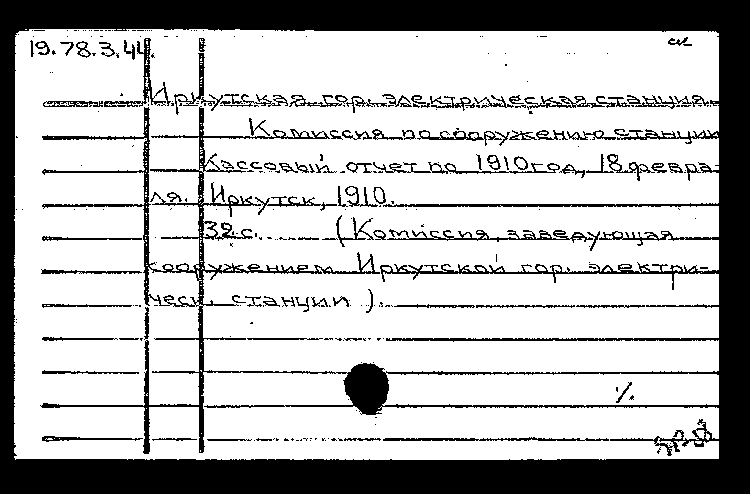 19.78.3.44.
Иркутская гор. электрическая станция.
Комиссия по сооружению станции
Кассовый отчет по 1910 год, 18 февра-
ля. Иркутск, 1910.
32 с. (Комиссия, заведующая
сооружением Иркутской гор. электри-
ческ. станции).